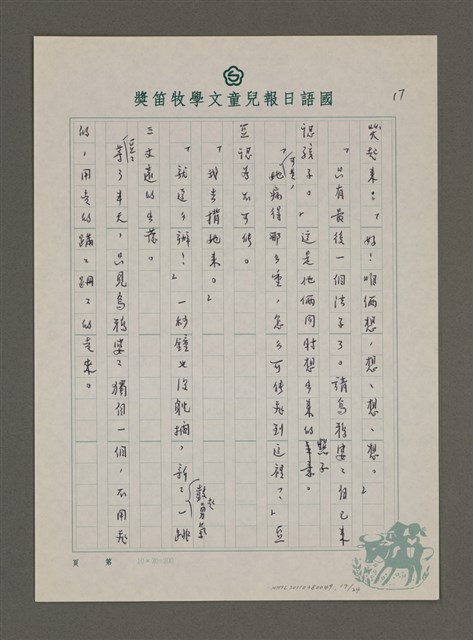 國語日報兒童文學牧笛獎
17
哭起來。「好！咱倆想，想、想、想。」
「只有最後一個法子了。請烏鴉婆婆自己來
認孩子。」這是他倆同時想出來的點子
「可是，她病得那么重，怎么可能飛到這裡？」豆
豆認為不可能。
「我去揹她來。」
「就這么辦！」一秒鐘也沒耽擱，新新一跳
鼓起勇氣
三丈遠的
等了半天，只見烏鴉婆婆獨個一個，不用飛
的，用走的蹣蹣跚跚的走來。
第 頁
17/24